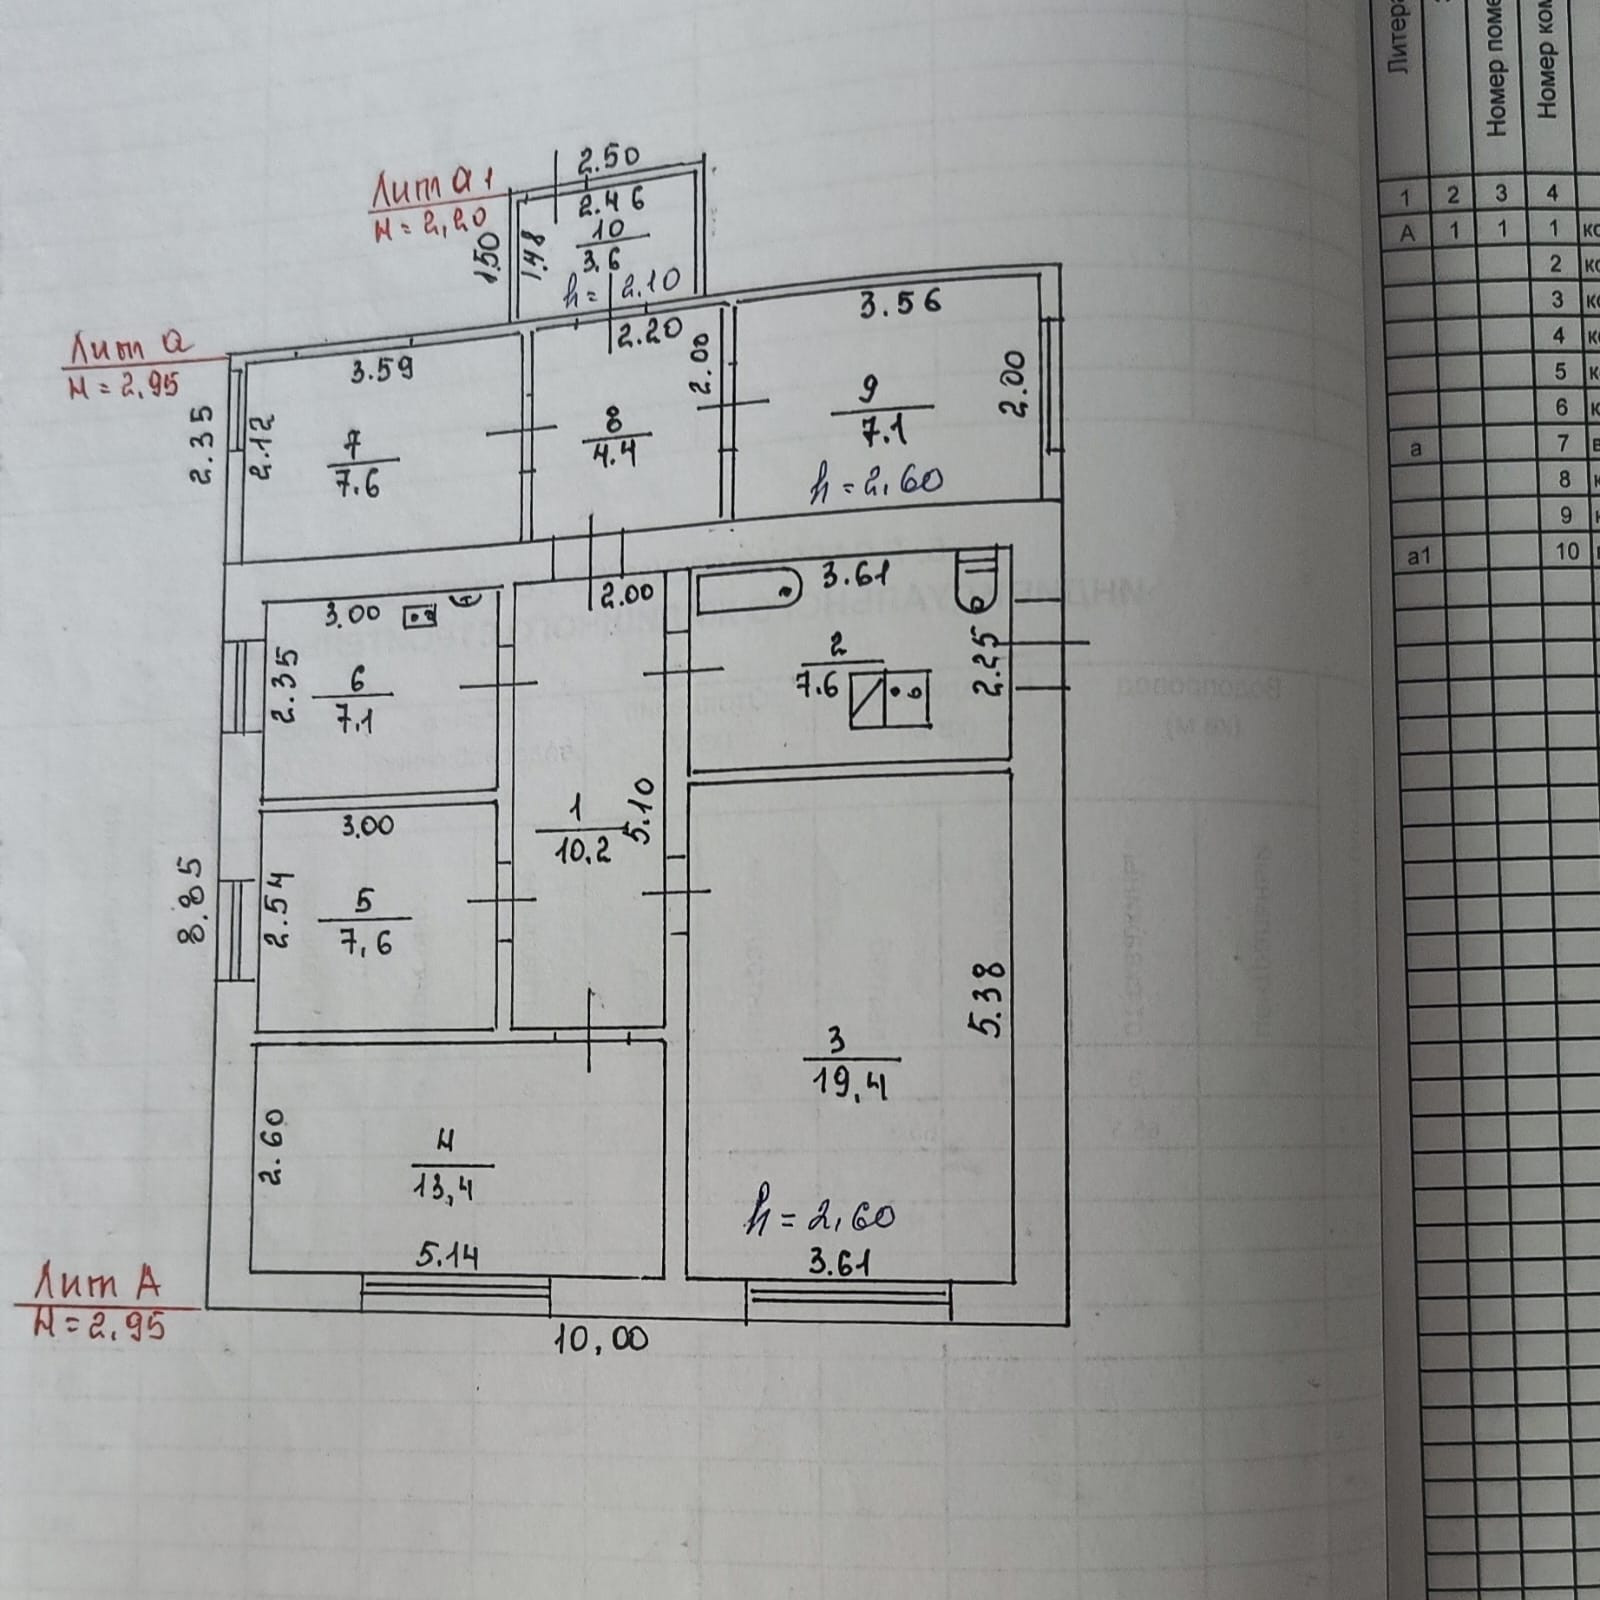 Лит а1
H = 2,20
2.50
2.46
10
3.6
h = 2.10
1.50
1.48
Лит а
H = 2.95
2.35
2.12
3.59
7
7.6
2.20
2.00
8
4.4
3.56
2.00
9
7.1
h = 2.60
3.00
2.35
6
7.1
2.00
1
10,2
5.10
3.61
2
7.6
2.25
8.85
3.00
2.54
5
7,6
5.38
3
19,4
h = 2,60
3.61
2.60
4
13,4
5.14
Лит А
H = 2,95
10,00
Номер
1 2 3 4
А 1 1 1
2
3
4
5
6
а 7
8
9
а1 10